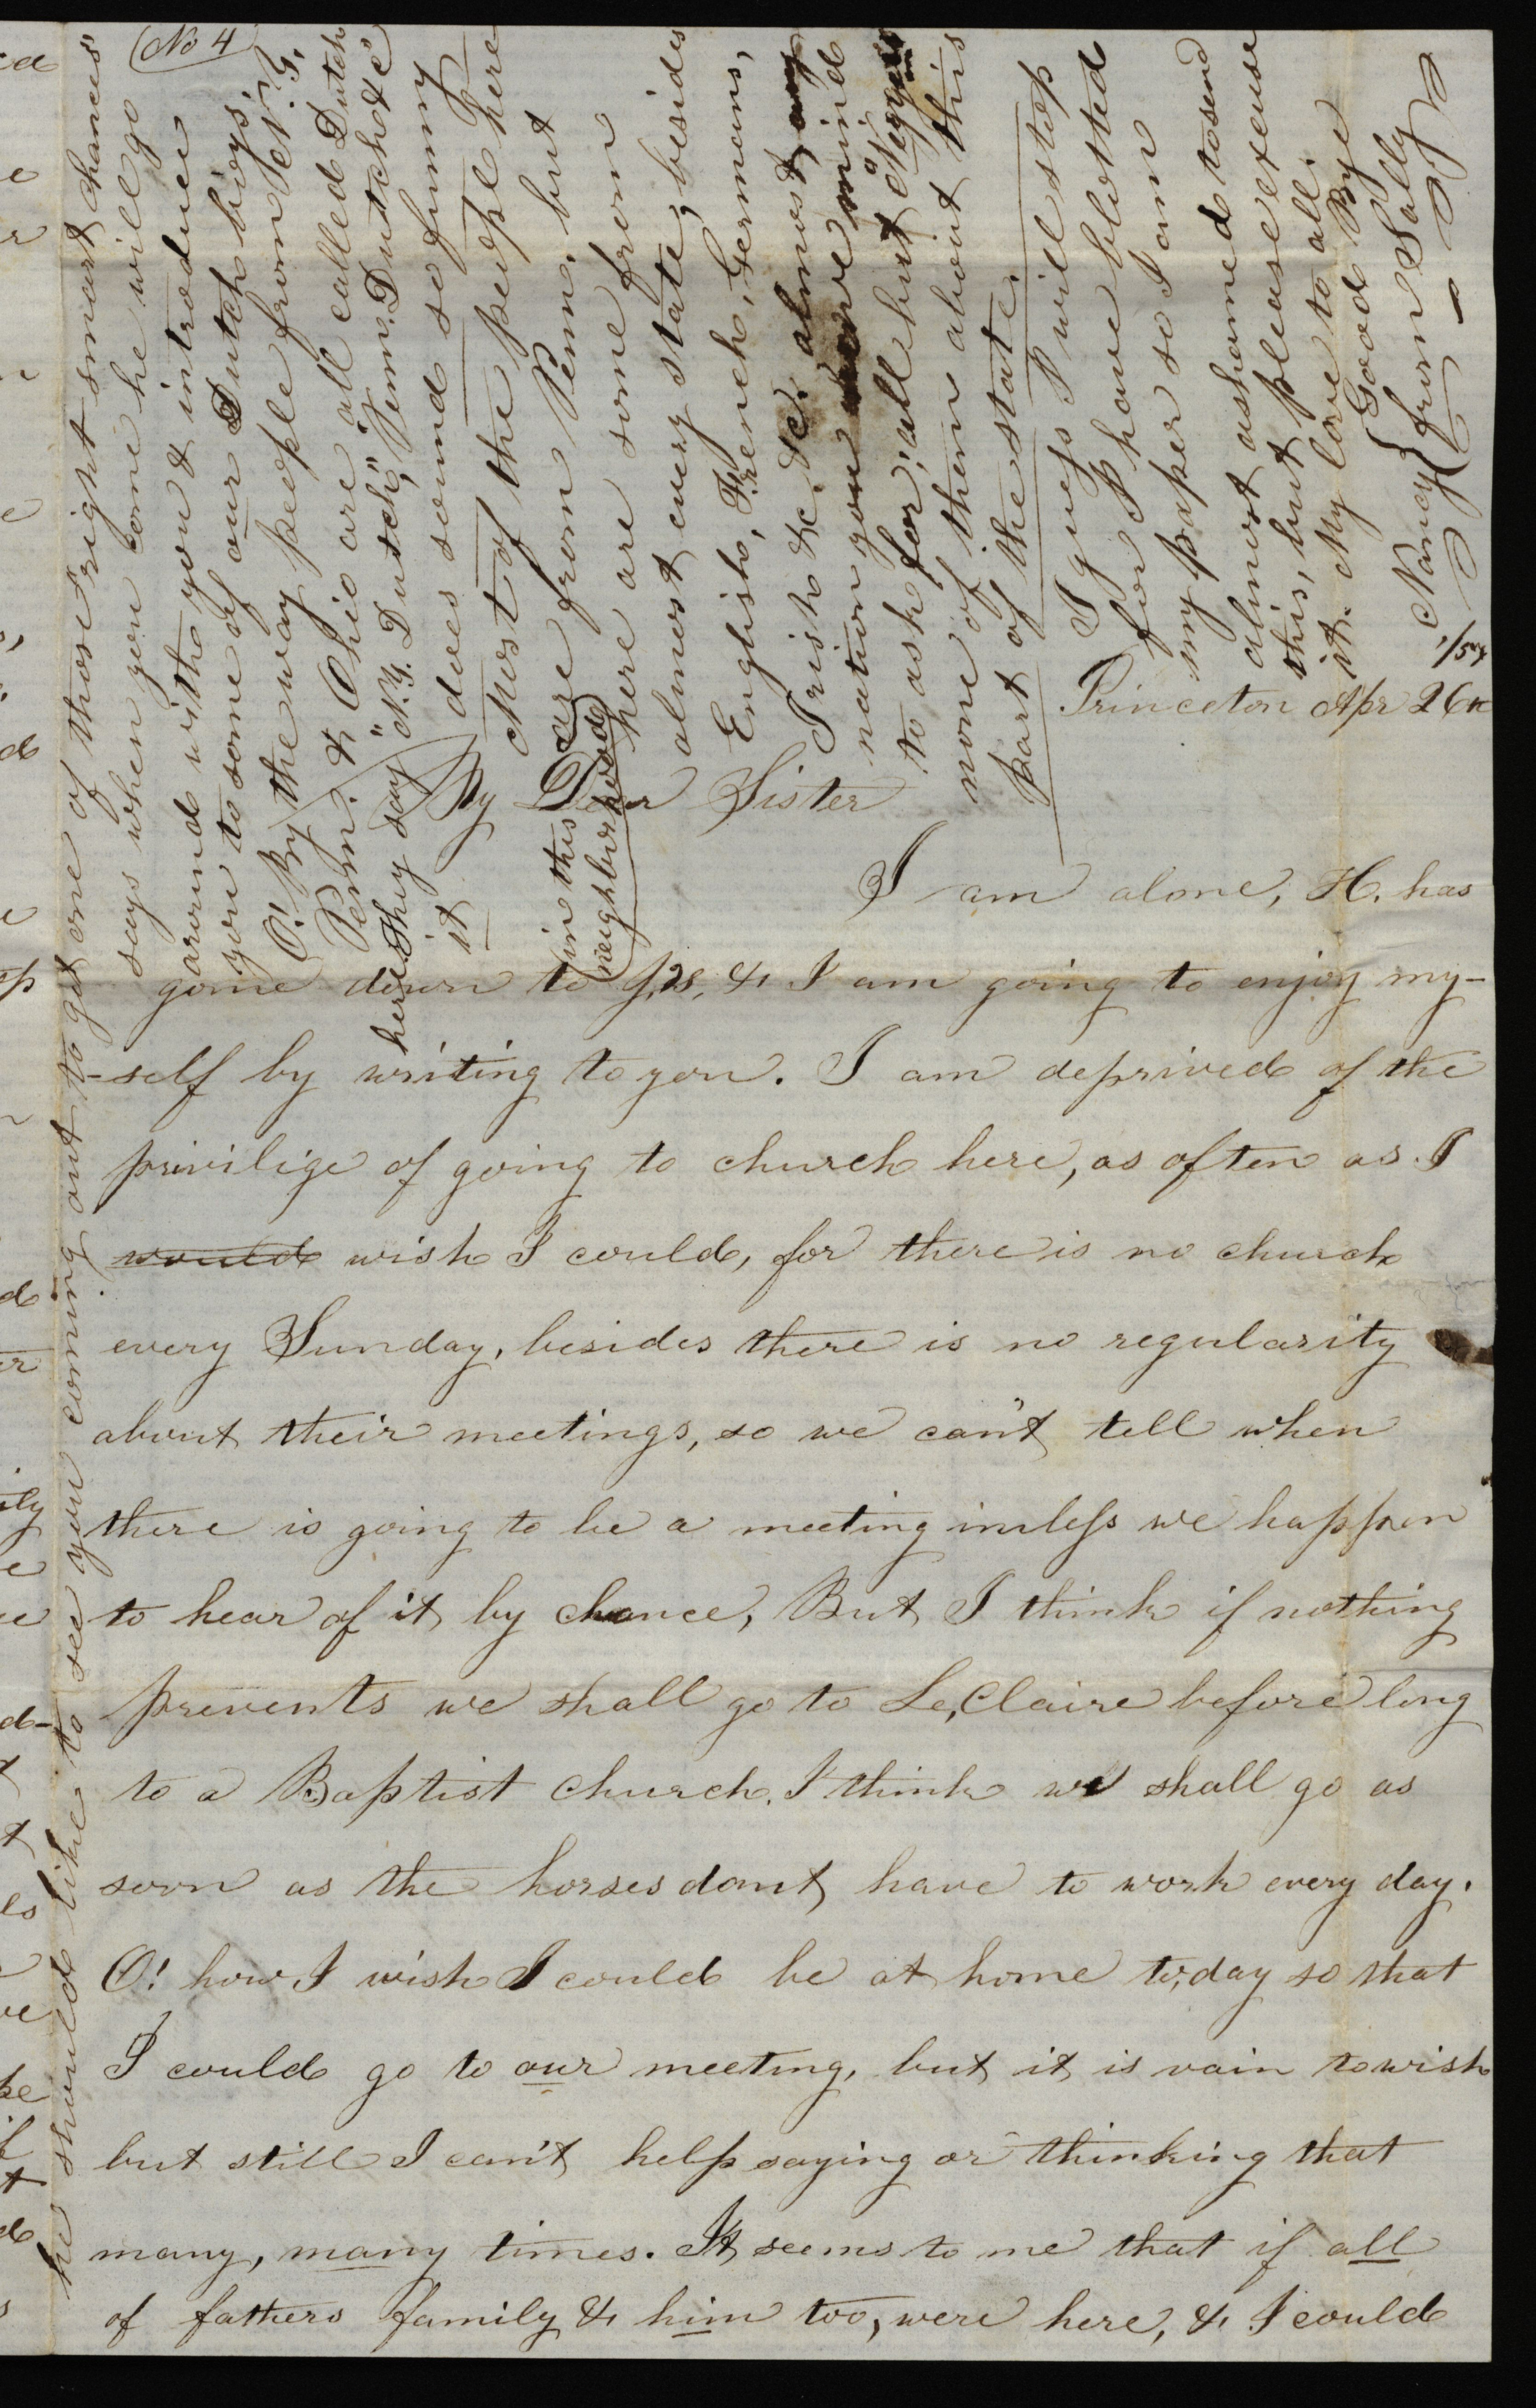 No 4
Princeton Apr 26th
My Dear Sister
I am alone, H. has
gone down to J,s, & I am going to enjoy my-
-self by writing to you. I am deprived of the
privilige of going to church here, as often as I
would wish I could, for there is no church
every Sunday, besides there is no regularity
about their meetings, so we can't tell when
there is going to be a meeting unless we happen
to hear of it by chance, But I think if nothing
prevents we shall go to Le,Claire before long
to a Baptist church. I think we shall go as
soon as the horses dont have to work every day.
O! how I wish I could be at home to,day so that
I could go to our meeting, but it is vain to wish
but still I can't help saying or thinking that
many, many times. It seems to me that if all
of fathers family & him too, were here, & I could
he should like to see you coming out to get one of those "right smart chances"
says when you come he will go
around with you & introduce
you to some of our Dutch boys.
O! By the way people from N.Y.
Penn. & Ohio are all called Dutch
here they say "N.Y. Dutch", "Penn. Dutch &c"
it does sound so funny
Most of the people here
in this neighborhood are from Penn. but
there are some from
almost every state, besides
English, French, Germans,
Irish &c. &c. almost any
nation you have mind
to ask for, all but Negroes
none of them about this
part of the state.
I guess I will stop
for I have blotted
my paper so I am
almost ashamed to send
this, but please excuse
it. My love to all.
Good Bye
Nancy } from Sally